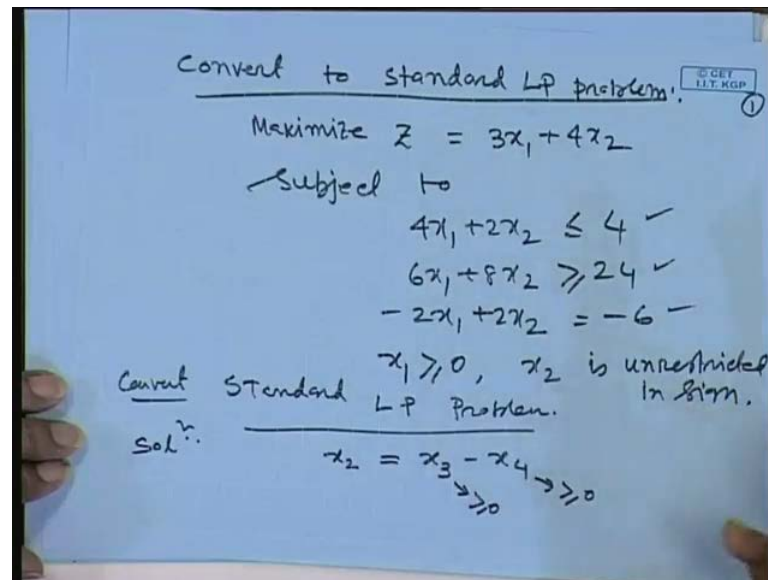 Convert to Standard LP problem.
© CET
I.I.T. KGP
1
Maximize Z = 3x₁ + 4x₂
Subject to
4x₁ + 2x₂ ≤ 4 ✓
6x₁ + 8x₂ ≥ 24 ✓
- 2x₁ + 2x₂ = -6 -
x₁ ≥ 0, x₂ is unrestricted
in sign.
Convert Standard
LP Problem.
Solⁿ:
x₂ = x₃ - x₄ → ≥0
↘ ≥0